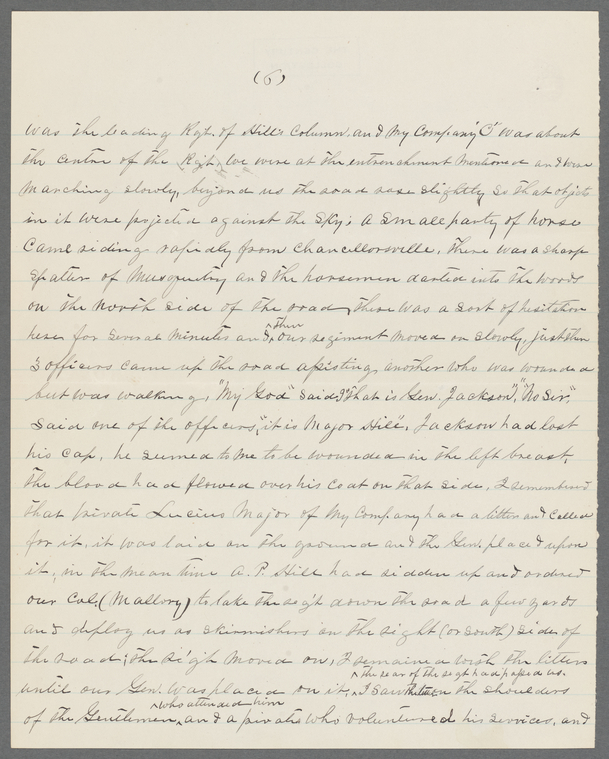 (6)
was the leading Rgt. of Hill's Column, and my Company "C" was about
the centre of the Rgt, we were at the entrenchment mentioned and were
marching slowly, beyond us the road rose slightly so that objects
in it were projected against the sky; a small party of horse
came riding rapidly from Chancellorsville, there was a sharp
spatter of musquetry and the horsemen darted into the woods
on the north side of the road, there was a sort of hesitation
here for several minutes and then our regiment moved on slowly, just then
3 officers came up the road assisting another who was wounded
but was walking, "My God" said I "that is Gen. Jackson", "No Sir",
said one of the officers, "it is Major Hill", Jackson had lost
his cap, he seemed to me to be wounded in the left breast,
the blood had flowed over his coat on that side, I remembered
that private Lucius Major of my Company had a litter and called
for it, it was laid on the ground and the Gen. placed upon
it, in the mean time A. P. Hill had ridden up and ordered
our Col. (Mallory) to take the regt down the road a few yards
and deploy us as skirmishers on the right (or south) side of
the road; the regt moved on, I remained with the litter
until our Gen. was placed on it, the rear of the regt had passed us. I saw on the shoulders
of the Gentlemen who attended him, and a private who volunteered his services, and